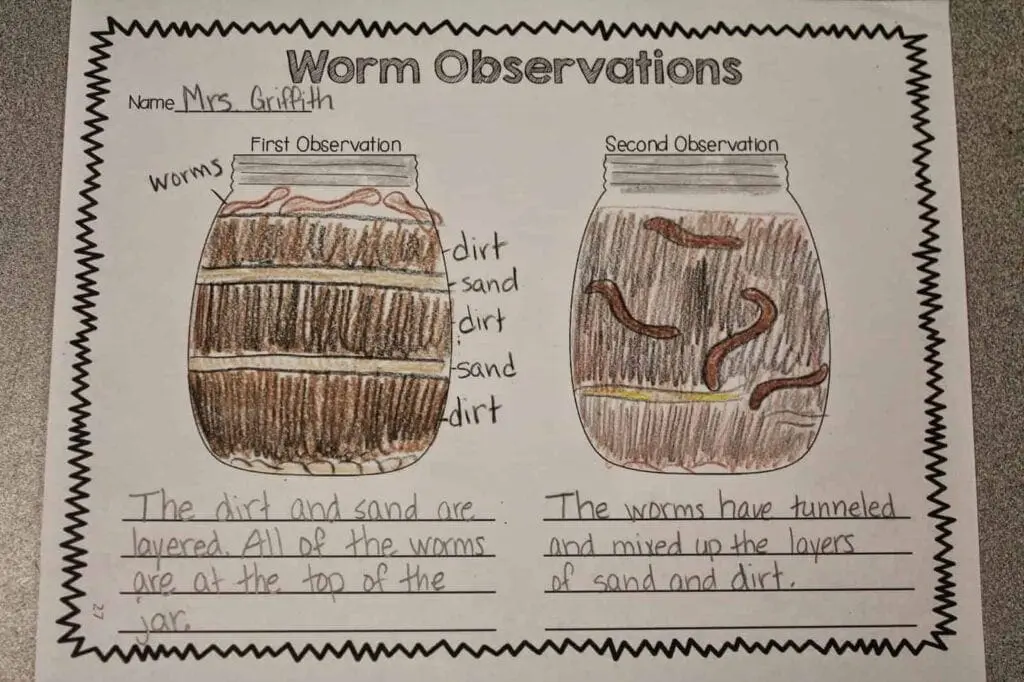 Worm Observations
Name Mrs Griffith
First Observation
worms
dirt
sand
dirt
sand
dirt
The dirt and sand are
layered. All of the worms
are at the top of the
jar.
Second Observation
The worms have tunneled
and mixed up the layers
of sand and dirt.
27